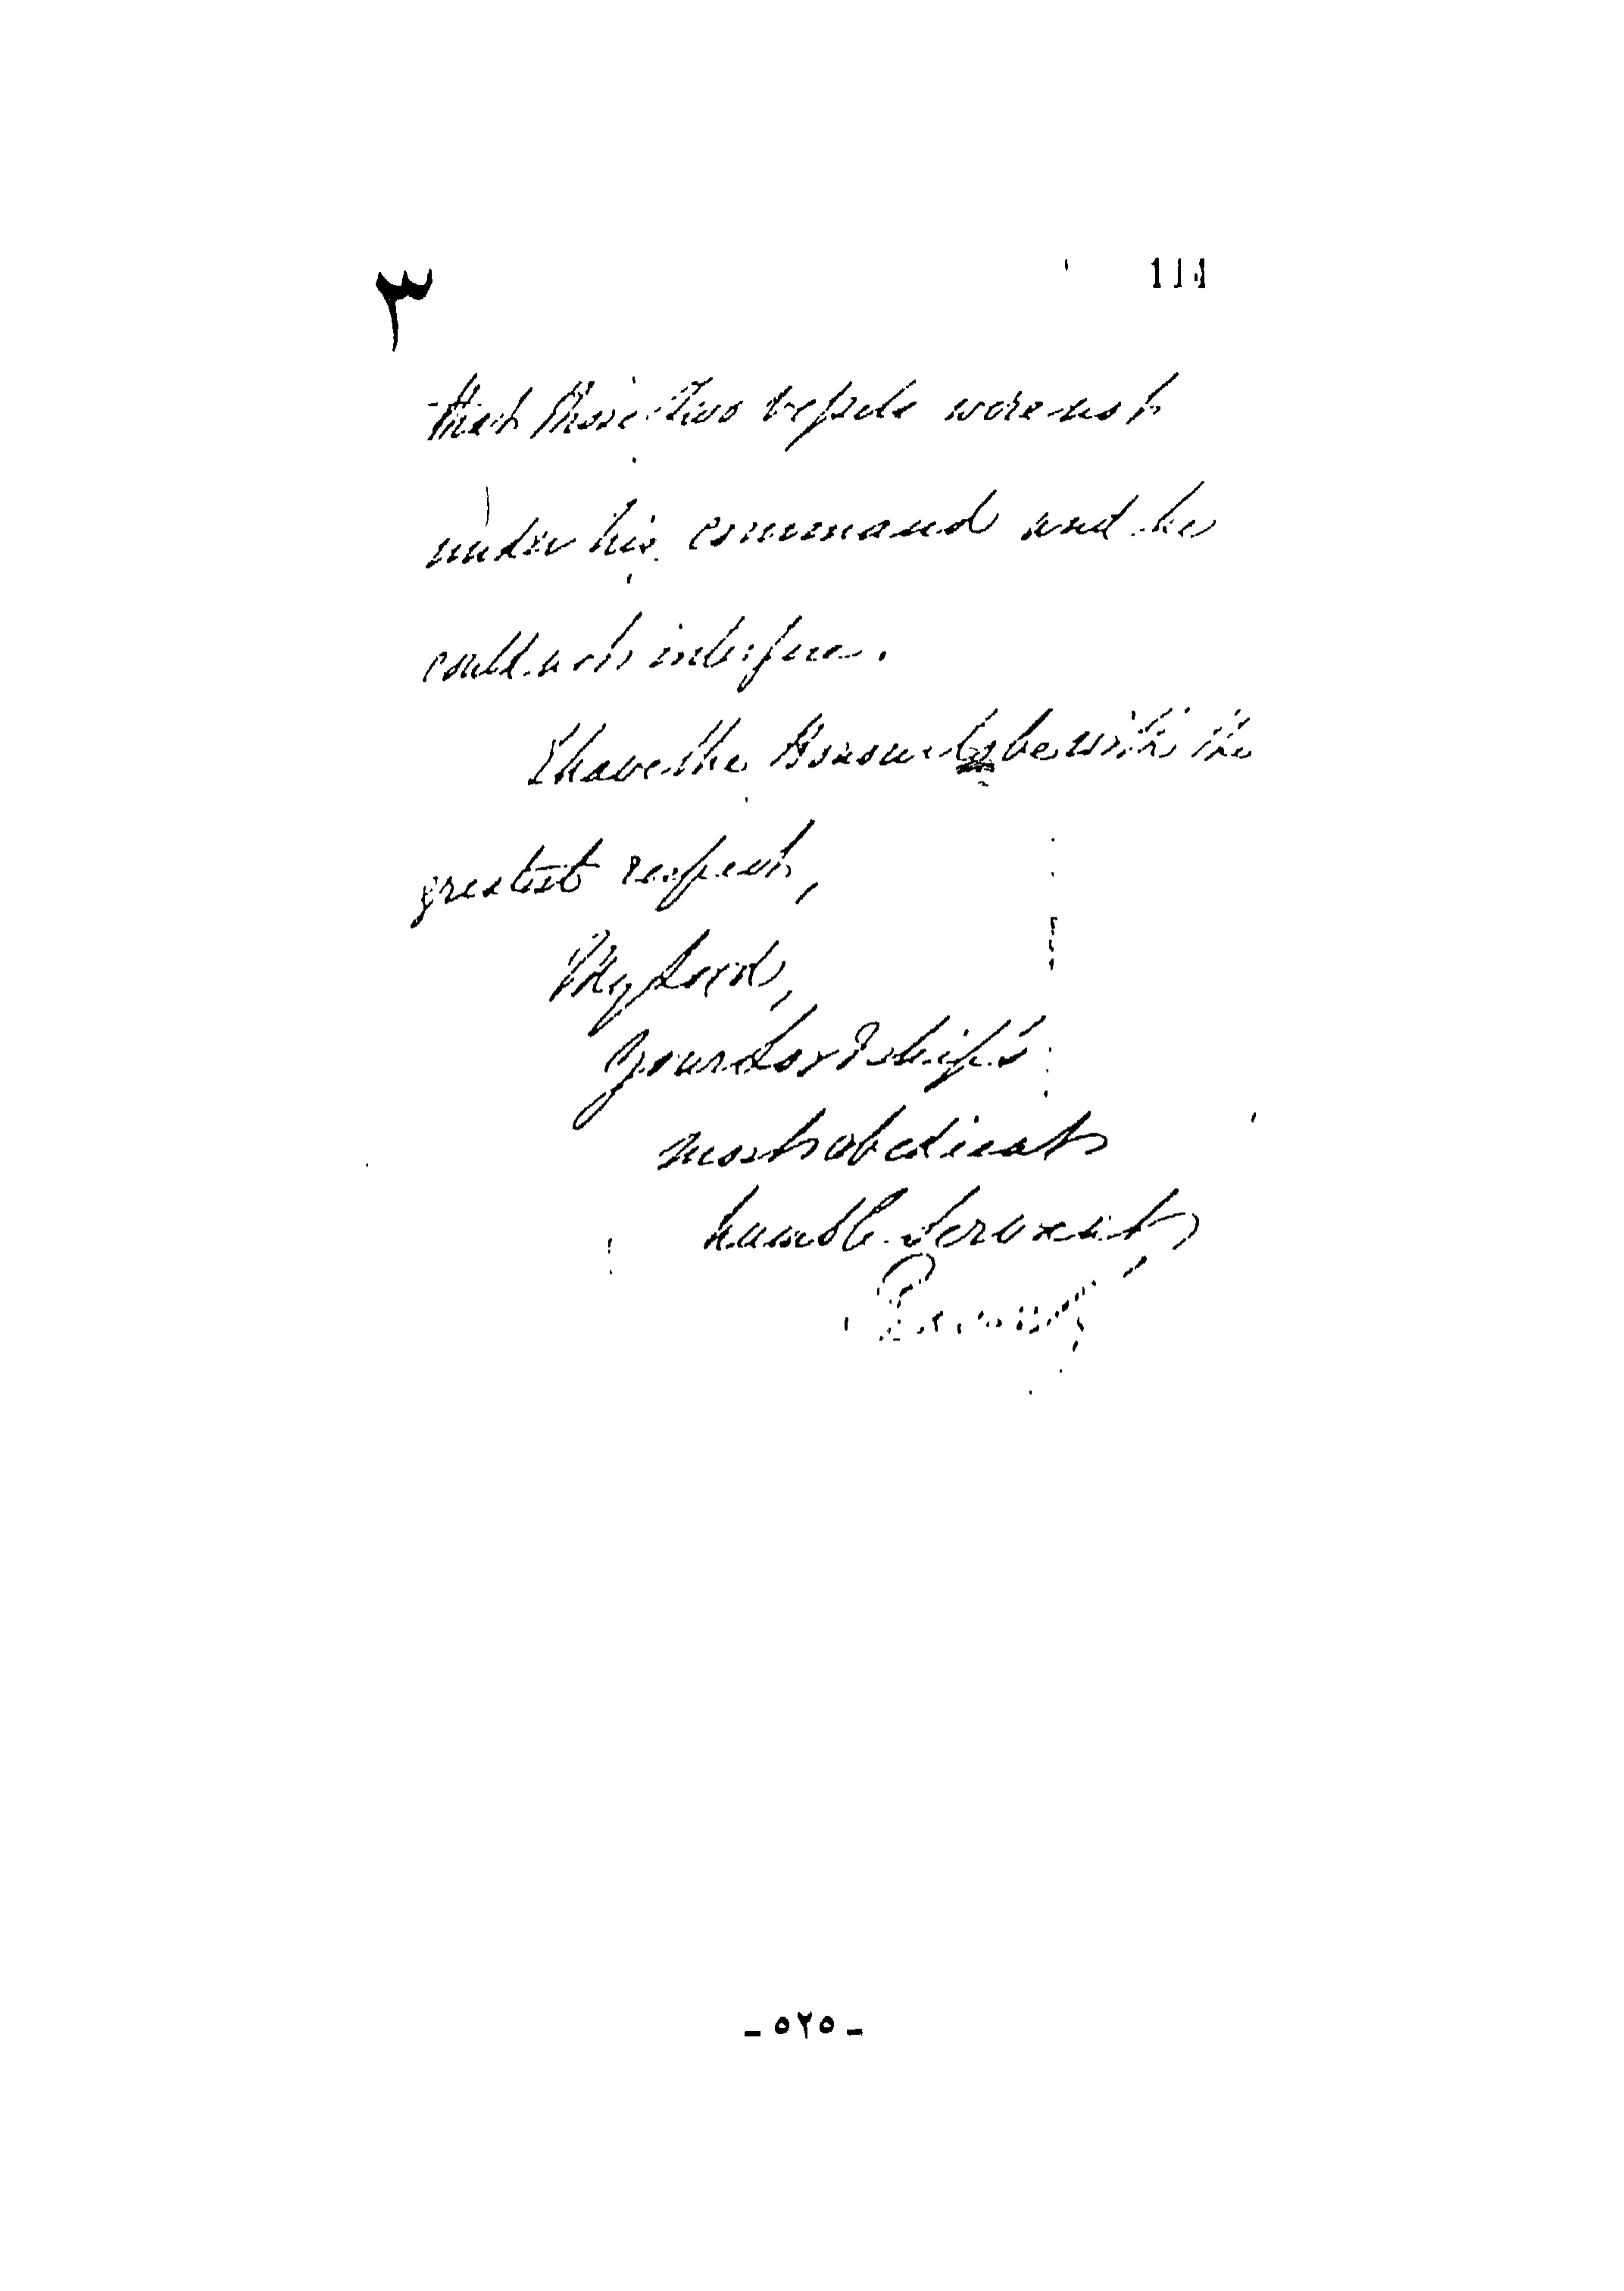 ٣
114
that those two vessels were not
under his command and he
could not interfere.
I have the honour to be with the
greatest respect,
My Lord,
Your Lordship's
most obedient
humble Servant,
- ٥٢٥ -